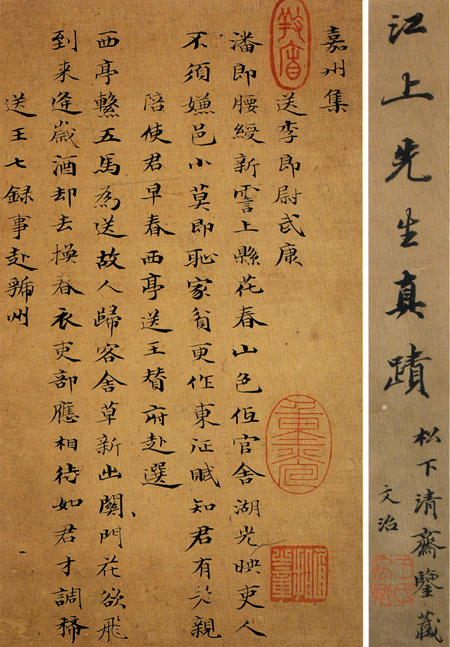 江上先生真蹟
松下清齋鑒藏
文治
嘉州集
送李郎尉武康
潘郎腰綬新霅上縣花春山色低官舍湖光映吏人
不須嫌邑小莫即恥家貧更作東征賦知君有老親
陪使君早春西亭送王贊府赴選
西亭繫五馬為送故人歸客舍草新出關門花欲飛
到來逢歲酒却去換春衣吏部應相待如君才調稀
送王七録事赴虢州